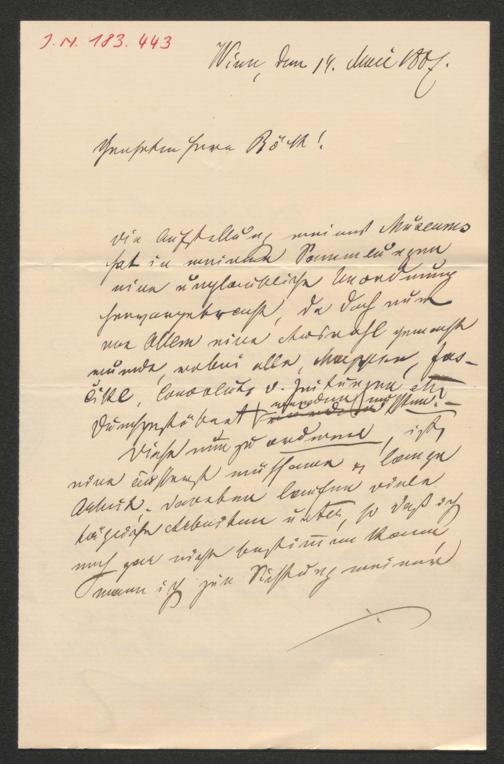 J. N. 183.443
Wien, den 14. Mai 1887.
Geehrter Herr Böck!
Die Aufstellung meines Museums
hat in meinen Sammlungen
eine unglaubliche Unordnung
hervorgebracht, da doch nur
vor Allem eine Auswahl gemacht
wurde, wobei alle Mappen, Fas-
cikel, Convoluts u. Zeitungen etc
durchgestöbert werden mußten.
Diese nun zu ordnen, ist
eine äußerst mühsame & lange
Arbeit. Daneben laufen viele
tägliche Arbeiten unter, so daß ich
noch gar nicht bestimmen kann
wann ich zur Sichtung meiner